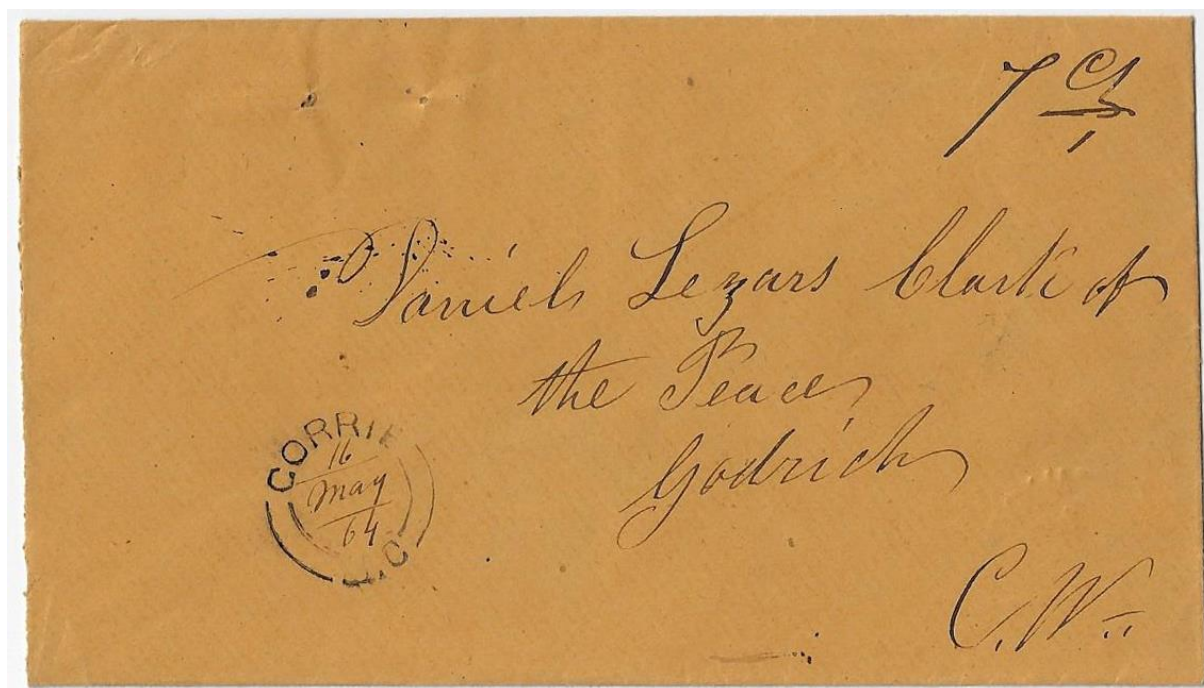 7 Cts
Daniel Lezars Clark of
the Peace
Godrich
CORRIE
16
May
64
U.C
C.W.